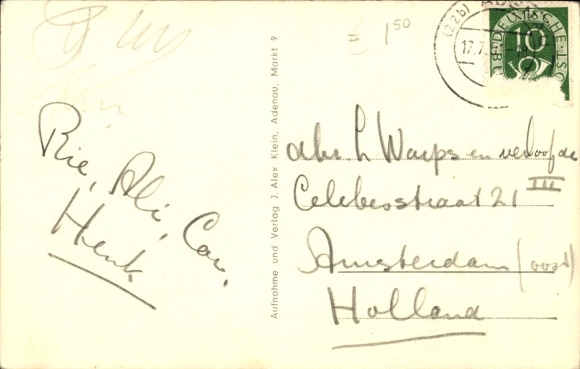 £ 1 50
(22b)
17.7.
DEUTSCHE
10
Rie, Ali, Cor,
Henk
Aufnahme und Verlag J. Alex Klein, Adenau, Markt 9
L Warps en verloofde
Celebesstraat 21 III
Amsterdam (oost)
Holland